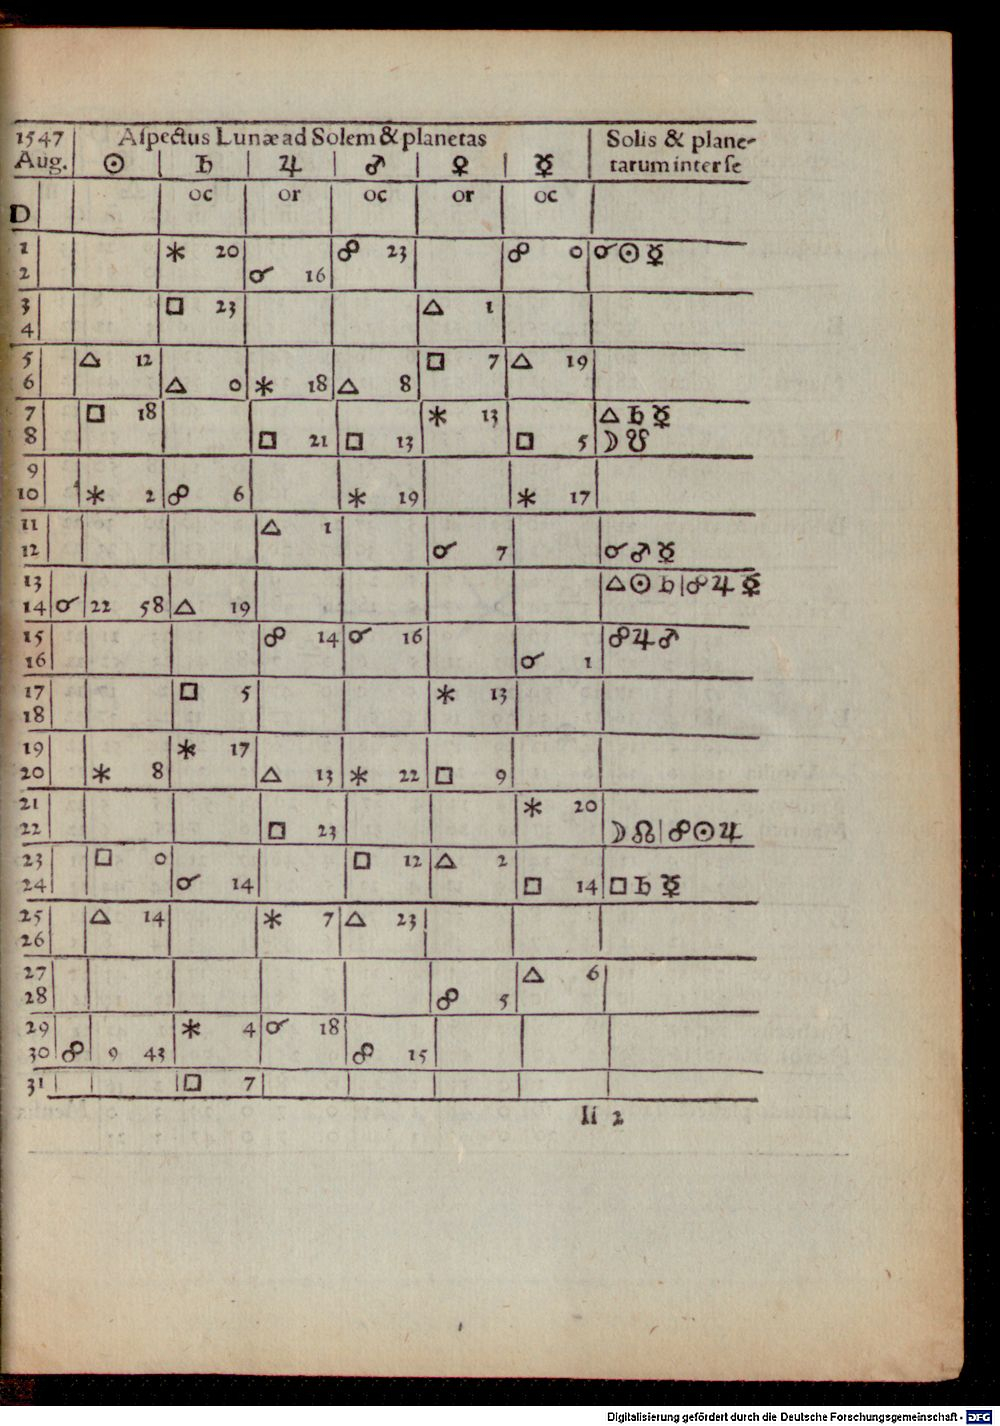 1547 | Aſpectus Lunæ ad Solem & planetas | Solis & plane-
Aug. | ☉ | ♄ | ♃ | ♂ | ♀ | ☿ | tarum inter ſe
D | | oc | or | oc | or | oc
1 | | ⚹ 20 | | ☍ 23 | | ☍ 0 | ☌ ☉ ☿
2 | | | ☌ 16
3 | | □ 23 | | | △ 1
4
5 | △ 12 | | | | □ 7 | △ 19
6 | | △ 0 | ⚹ 18 | △ 8
7 | □ 18 | | | | ⚹ 13 | | △ ♄ ☿
8 | | | □ 21 | □ 13 | | □ 5 | ☽ ☋
9
10 | ⚹ 2 | ☍ 6 | | ⚹ 19 | | ⚹ 17
11 | | | △ 1
12 | | | | | ☌ 7 | | ☌ ♂ ☿
13 | | | | | | | △ ☉ ♄ | ☍ ♃ ☿
14 | ☌ 22 58 | △ 19
15 | | | ☍ 14 | ☌ 16 | | | ☍ ♃ ♂
16 | | | | | | ☌ 1
17 | | □ 5 | | | ⚹ 13
18
19 | | ⚹ 17
20 | ⚹ 8 | | △ 13 | ⚹ 22 | □ 9
21 | | | | | | ⚹ 20
22 | | | □ 23 | | | | ☽ ☊ | ☍ ☉ ♃
23 | □ 0 | | | □ 12 | △ 2
24 | | ☌ 14 | | | | □ 14 | □ ♄ ☿
25 | △ 14 | | ⚹ 7 | △ 23
26
27 | | | | | | △ 6
28 | | | | | ☍ 5
29 | | ⚹ 4 | ☌ 18
30 | ☍ 9 43 | | | ☍ 15
31 | | □ 7
Ii 2
Digitalisierung gefördert durch die Deutsche Forschungsgemeinschaft - DFG